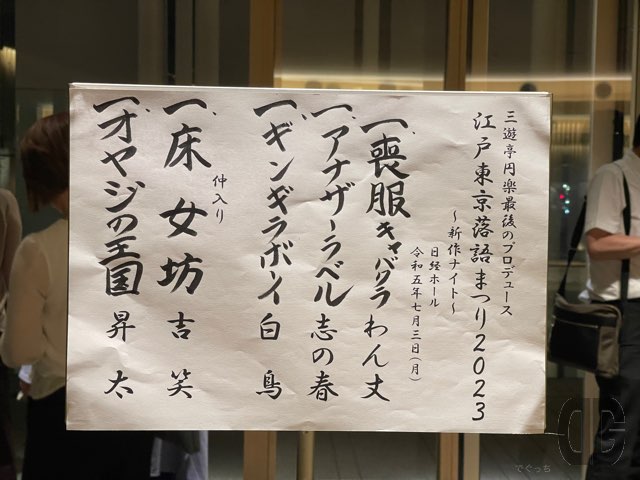 三遊亭円楽最後のプロデュース
江戸東京落語まつり2023
～新作ナイト～
日経ホール
令和五年七月三日(月)
一、喪服キャバクラ わん丈
一、アナザーラベル 志の春
一、ギンギラボーイ 白鳥
仲入り
一、床女坊 吉笑
一、オヤジの王国 昇太
でぐっち